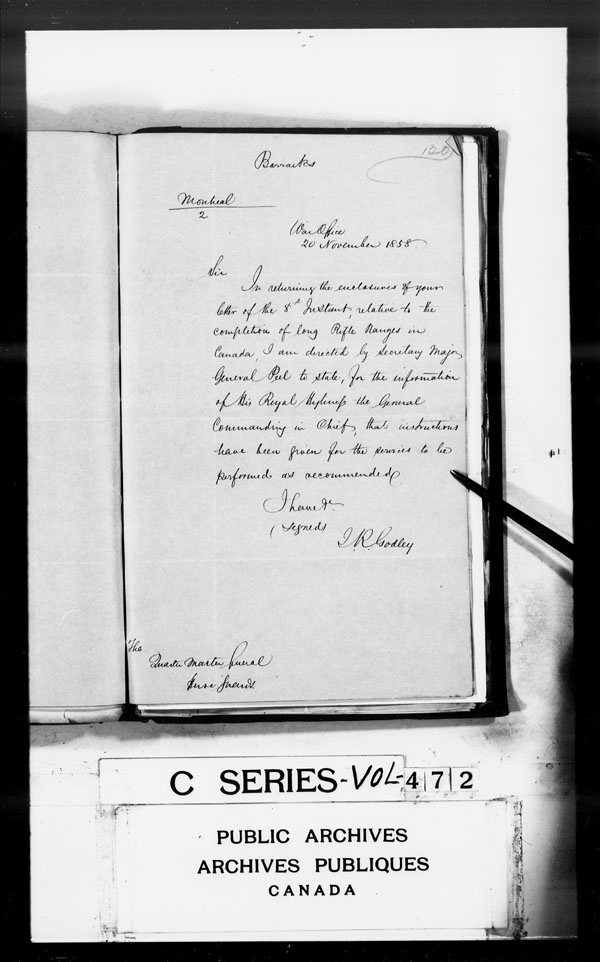 120
Barracks
Montreal
2
War Office
20 November 1858
Sir
In returning the enclosures of your
letter of the 8th Instant, relative to the
completion of long Rifle Ranges in
Canada, I am directed by Secretary Major
General Peel to state, for the information
of His Royal Highness the General
Commanding in Chief, that instructions
have been given for the services to be
performed as recommended
I have &c
(signed)
J. R. Godley
The
Quarter Master General
Horse Guards
C SERIES-VOL-472
PUBLIC ARCHIVES
ARCHIVES PUBLIQUES
CANADA